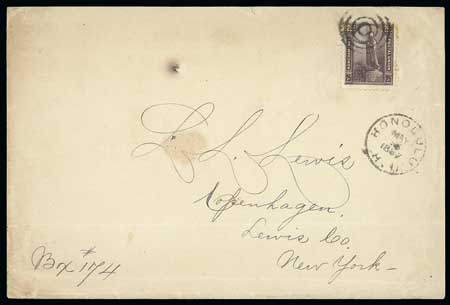 HONOLULU
MAY
188
H.I.
L. L. Lewis
Copenhagen.
Lewis Co.
New York-
Box #174